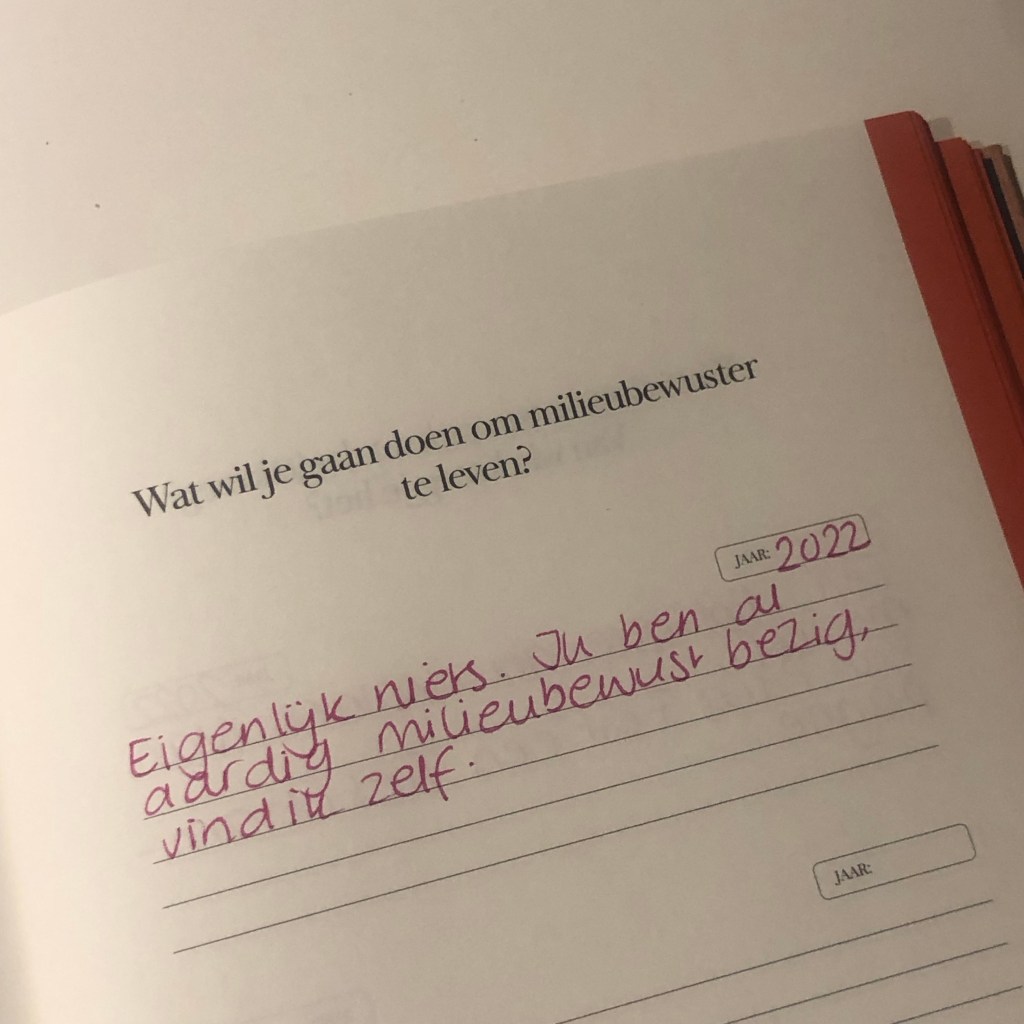 Wat wil je gaan doen om milieubewuster
te leven?
JAAR: 2022
Eigenlijk niets. Ik ben al
aardig milieubewust bezig,
vind ik zelf.
JAAR: